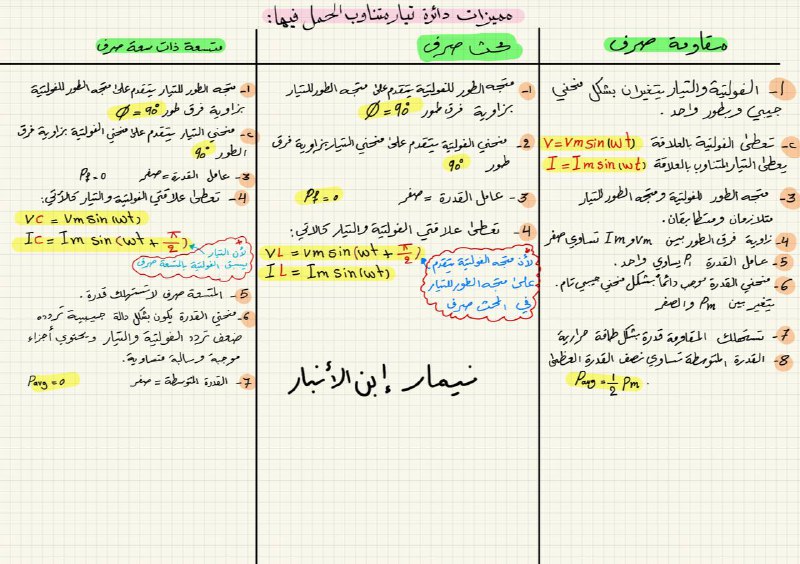 مميزات دائرة تيار متناوب الحمل فيها:
مقاومة صرف
1- الفولتية والتيار يتغيران بشكل منحني
جيبي وبطور واحد.
2- تعطى الفولتية بالعلاقة V = Vm sin (wt)
يعطى التيار المتناوب بالعلاقة I = Im sin(wt)
3- متجه الطور للفولتية ومتجه الطور للتيار
متلازمان ومتطابقان.
4- زاوية فرق الطور بين Vm و Im تساوي صفر
5- عامل القدرة Pf يساوي واحد.
6- منحني القدرة موجب دائماً بشكل منحني جيبي تام.
يتغير بين Pm والصفر
7- تستهلك المقاومة قدرة بشكل طاقة حرارية
8- القدرة المتوسطة تساوي نصف القدرة العظمى
Pavg = 1/2 Pm .
محث صرف
1- متجه الطور للفولتية يتقدم على متجه الطور للتيار
بزاوية فرق طور Ø = 90°
2- منحني الفولتية يتقدم على منحني التيار بزاوية فرق
طور 90°
3- عامل القدرة = صفر Pf = 0
4- تعطى علاقتي الفولتية والتيار كالاتي:
VL = Vm sin (wt + π/2)
IL = Im sin (wt)
لأن متجه الفولتية يتقدم
على متجه الطور للتيار
في المحث صرف
نيمار إبن الأنبار
متسعة ذات سعة صرف
1- متجه الطور للتيار يتقدم على متجه الطور للفولتية
بزاوية فرق طور Ø = 90°
2- منحني التيار يتقدم على منحني الفولتية بزاوية فرق
الطور 90°
3- عامل القدرة = صفر Pf = 0
4- تعطى علاقتي الفولتية والتيار كالآتي:
VC = Vm sin (wt)
IC = Im sin (wt + π/2)
لأن التيار
يسبق الفولتية بالمتسعة صرف
5- المتسعة صرف لا تستهلك قدرة.
6- منحني القدرة يكون بشكل دالة جيبية تردده
ضعف تردد الفولتية والتيار ويحتوي أجزاء
موجبة وسالبة متساوية.
7- القدرة المتوسطة = صفر Pavg = 0